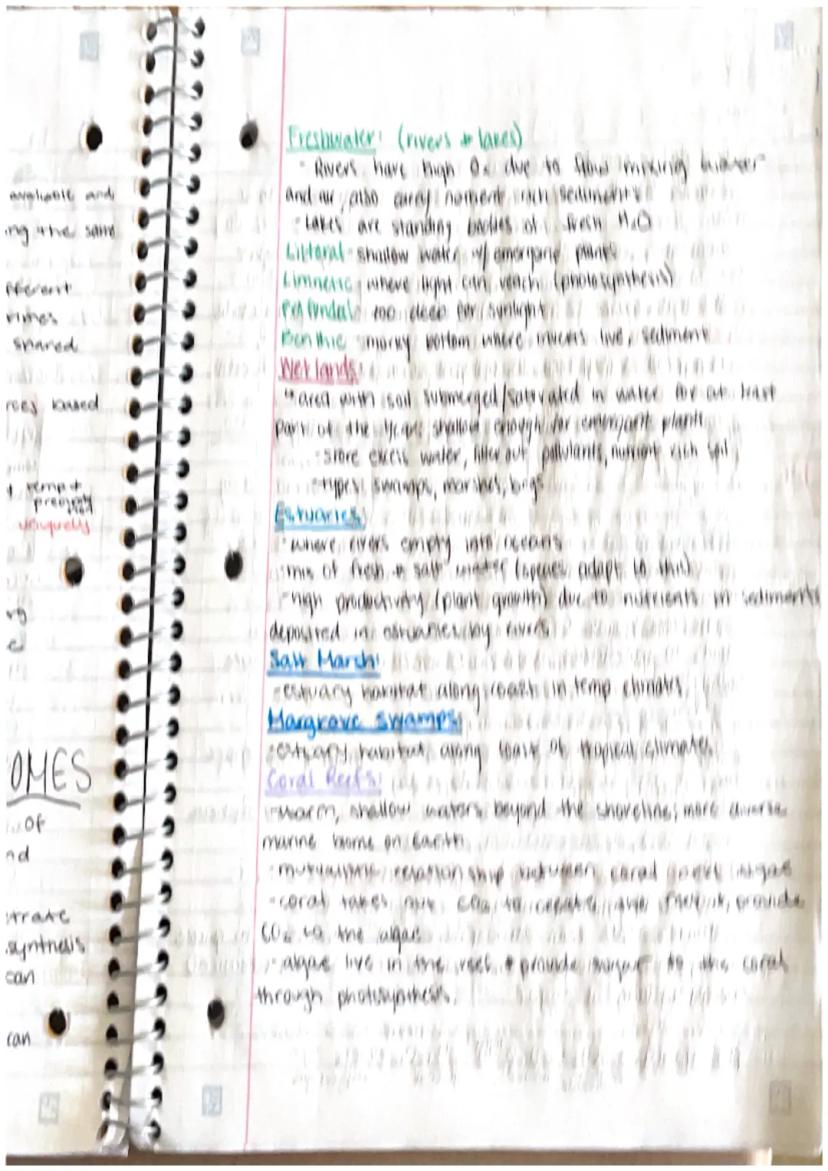 available and
ng the same
fferent
times
shared
rces based
temp +
uniquely
ry
e
OMES
of
nd
trate
synthesis
can
can
Freshwater: (rivers + lakes)
- Rivers have high O₂ due to flow mixing water
and air, also carry nutrient rich sediments
- Lakes are standing bodies of fresh H₂O
Littoral - shallow water w/ emergent plants
Limnetic - where light can reach (photosynthesis)
Profundal - too deep for sunlight
Benthic - murky bottom where inverts live, sediment
Wetlands:
area with soil submerged/saturated in water for at least
part of the year, shallow enough for emergent plants
- store excess water, filter out pollutants, nutrient rich soil
- types: swamps, marshes, bogs
Estuaries:
- where rivers empty into oceans
- mix of fresh + salt water (species adapt to this)
- high productivity (plant growth) due to nutrients in sediments
deposited in estuaries by rivers
Salt Marsh:
- estuary habitat along coast in temp climates
Mangrove swamps:
- estuary habitat along coast of tropical climates
Coral Reefs:
- warm, shallow waters beyond the shoreline; more diverse
marine biome on Earth
- mutualistic relationship between coral algae
- coral takes CO₂ to create the provide
CO₂ to the algae
- algae live in the reef + provide sugar to the coral
through photosynthesis.